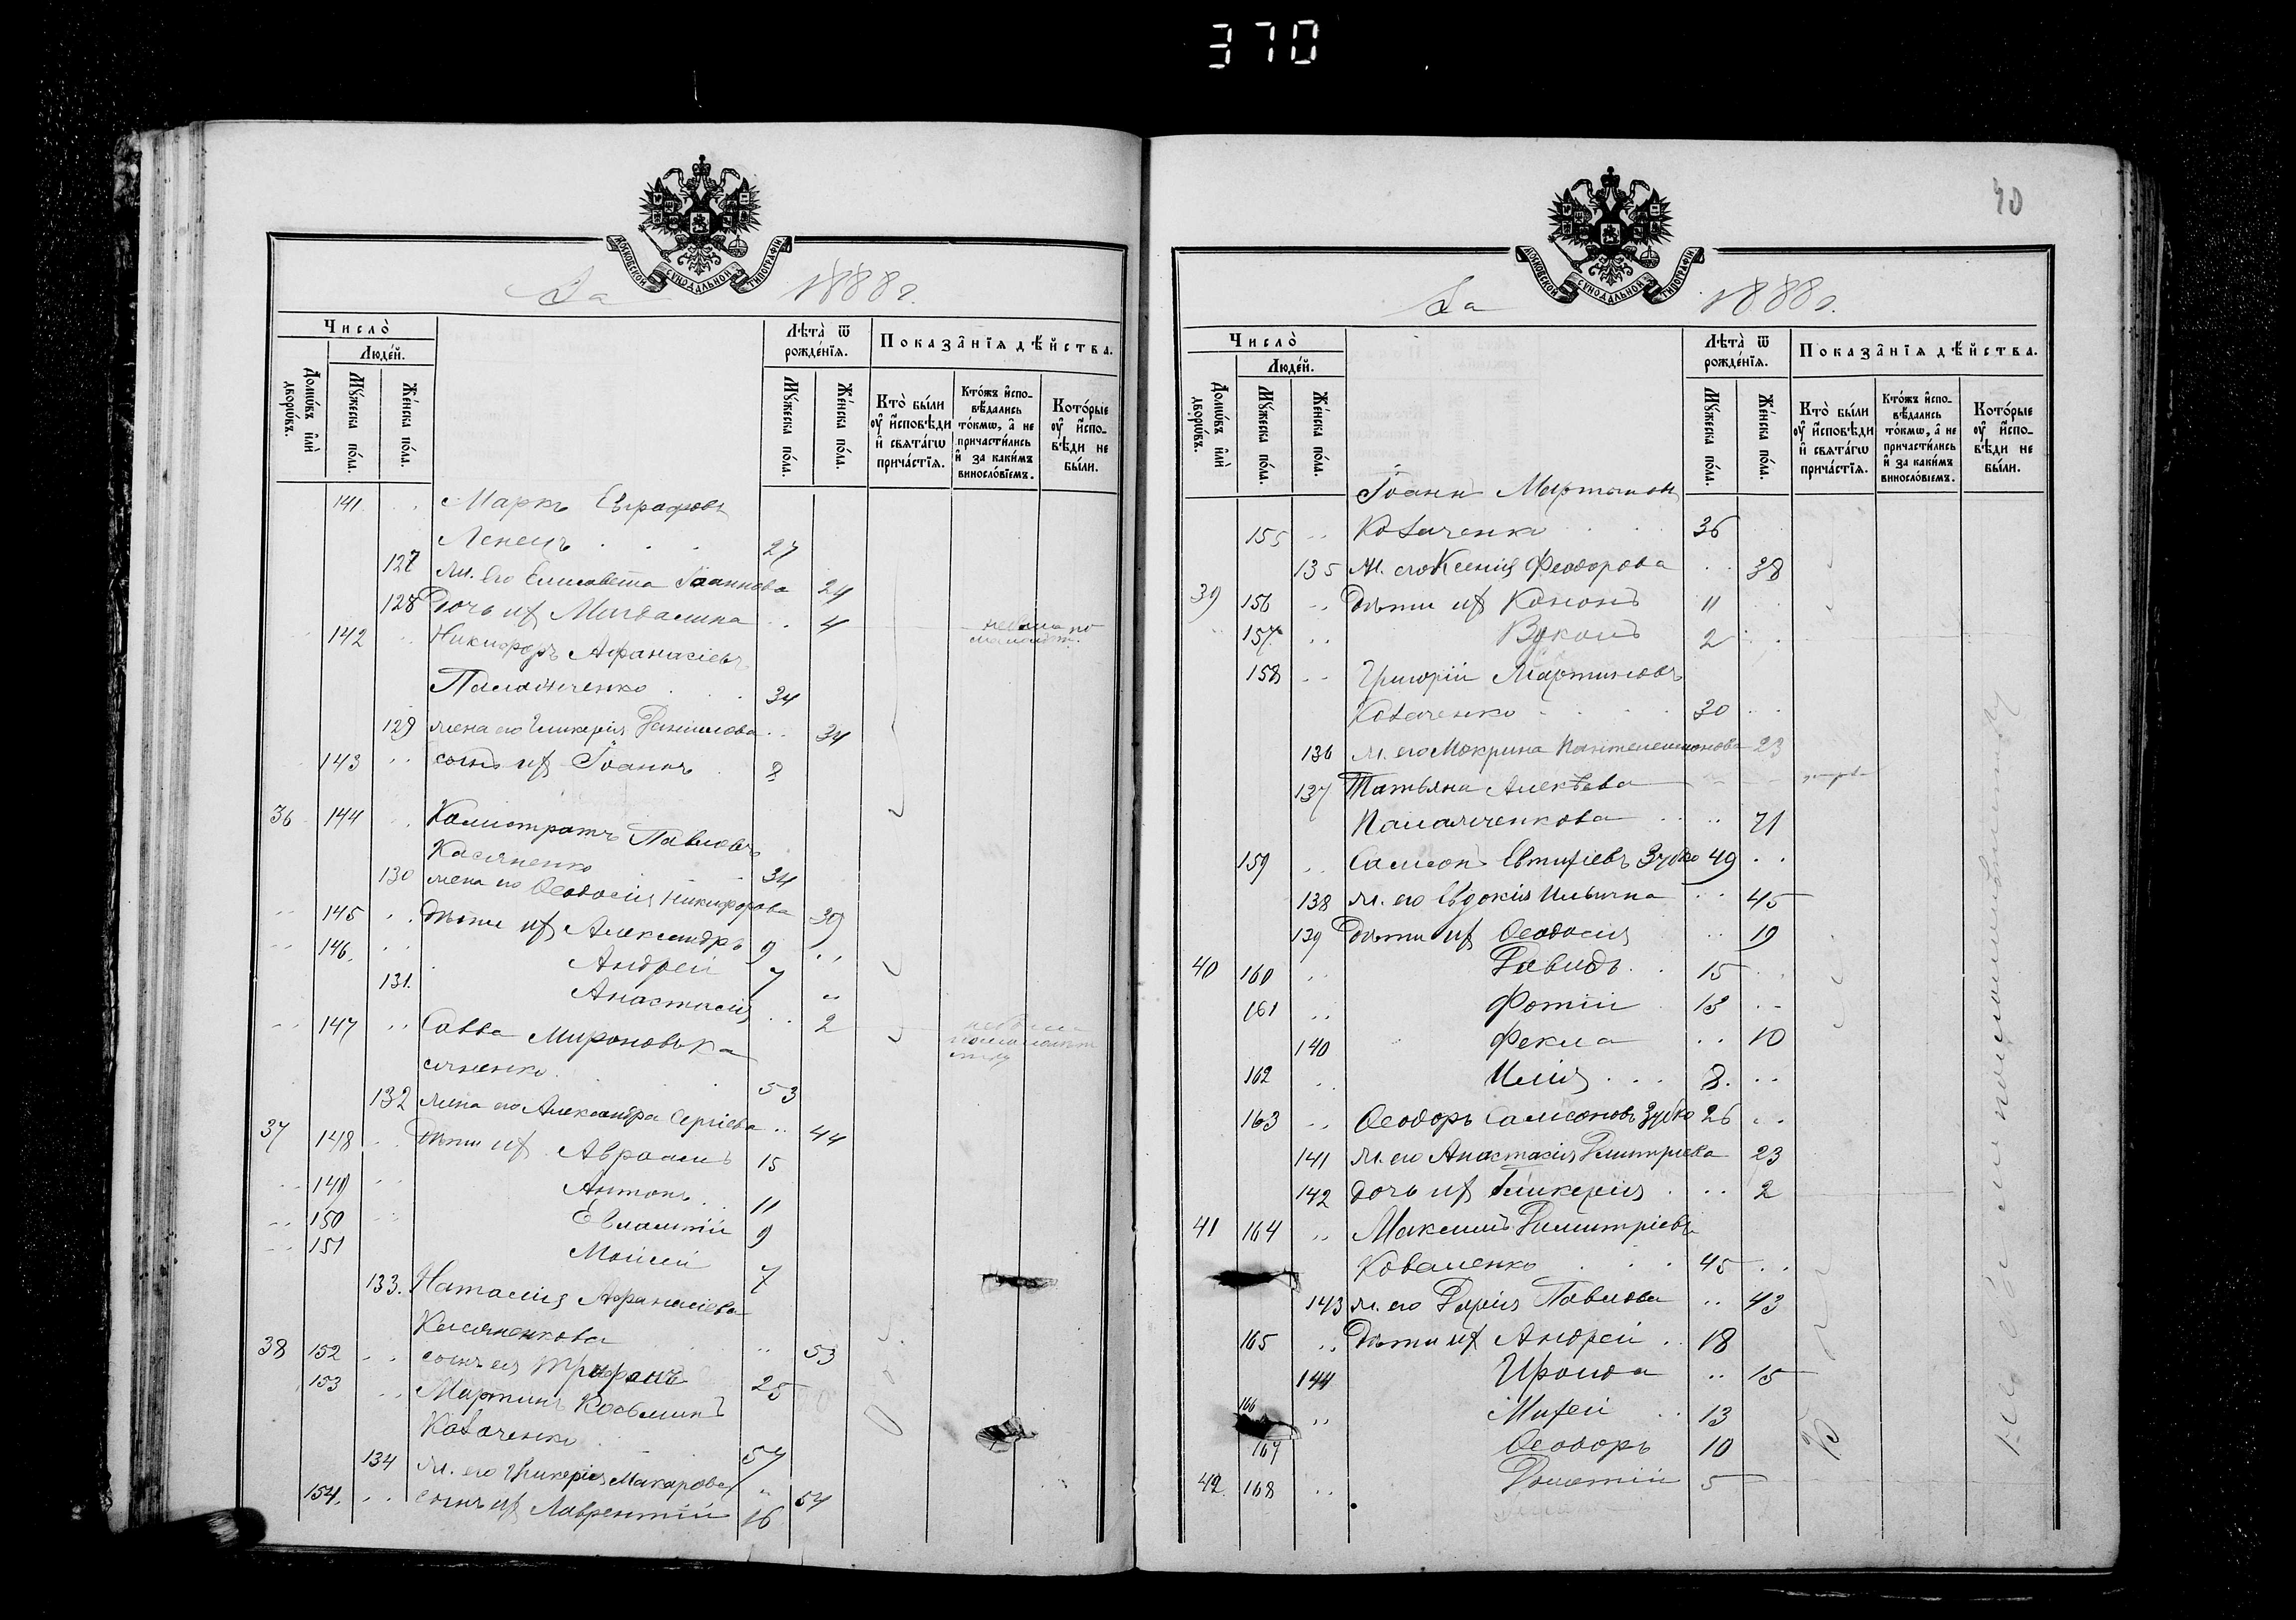 370
МОСКОВСКОЙ СУНОДАЛЬНОЙ ТИПОГРАФІИ
За 1888 г.
Число̀
Людей.
Домѡвъ и҆лѝ дворѡвъ.
Мꙋжеска пола.
Женска пола.
Лѣта̀ ѿ рожденїѧ.
Мꙋжеска пола.
Женска пола.
Показанїѧ дѣйства.
Кто̀ были ᲂу҆ и҆сповѣди и҆ свѧтагѡ причастїѧ.
Ктожъ и҆сповѣдались токмѡ, а҆ не причастились и҆ за какимъ винословїемъ.
Которые ᲂу҆ и҆сповѣди не были.
141 Маркъ Евграфовъ
Ленецъ 27
127 ж. его Елисавета Іоаннова 24
128 Дочь их Магдалина 4 небыла по малолѣт.
142 Никифоръ Афанасіевъ
34
129 жена его Гликерія Даніилова 34
143 сынъ их Іоаннъ 8
36 144 Калистратъ Павловъ
Касяненко 34
130 жена его Ѳеодосія Никифорова 39
145 Дѣти их Александръ 9
146. Андрей 7
131. Анастасія 2
147 Савва Мироновъ Ка
сяненко 53
132 жена его Александра Сергіева 44
37 148 Дѣти их Авраамъ 15
149 Антонъ 11
150 Евлампій 9
151 Моисей 7
133. Наталія Афанасіева
Касяненкова 53
38 152 сынъ ея Трифонъ 25
153 Мартинъ Косьминъ
Козаченко 57
134 ж. его Гликерія Макарова 54
154. сынъ их Лаврентій 16
40
МОСКОВСКОЙ СУНОДАЛЬНОЙ ТИПОГРАФІИ
За 1888 г.
Число̀
Людей.
Домѡвъ и҆лѝ дворѡвъ.
Мꙋжеска пола.
Женска пола.
Лѣта̀ ѿ рожденїѧ.
Мꙋжеска пола.
Женска пола.
Показанїѧ дѣйства.
Кто̀ были ᲂу҆ и҆сповѣди и҆ свѧтагѡ причастїѧ.
Ктожъ и҆сповѣдались токмѡ, а҆ не причастились и҆ за какимъ винословїемъ.
Которые ᲂу҆ и҆сповѣди не были.
Іоаннъ Мартиновъ
155 Козаченко 36
135 ж. его Ксенія Феодорова 38
39 156 Дѣти их Кононъ 11
157 Вуколъ 2
158 Григорій Мартиновъ
Козаченко 30
136 ж. его Мокрина Пантелеимонова 23
137 Татьяна Алекѣева
71
159 Самсонъ Евтихіевъ Зубко 49
138 ж. его Евдокія Ильична 45
139 Дѣти их Ѳеодосія 19
40 160 Давидъ 15
161 Фотій 13
140 Фекла 10
162 Илія 8.
163 Ѳеодоръ Самсоновъ Зубко 26
141 ж. его Анастасія Димитріева 23
142 дочь их Гликерія 2
41 164 Максимъ Димитріевъ
Коваленко 45
143 ж. его Дарія Павлова 43
165 Дѣти их Андрей 18
144 Ироида 15
166 Михей 13
167 Ѳеодоръ 10
42. 168 Дометій 5